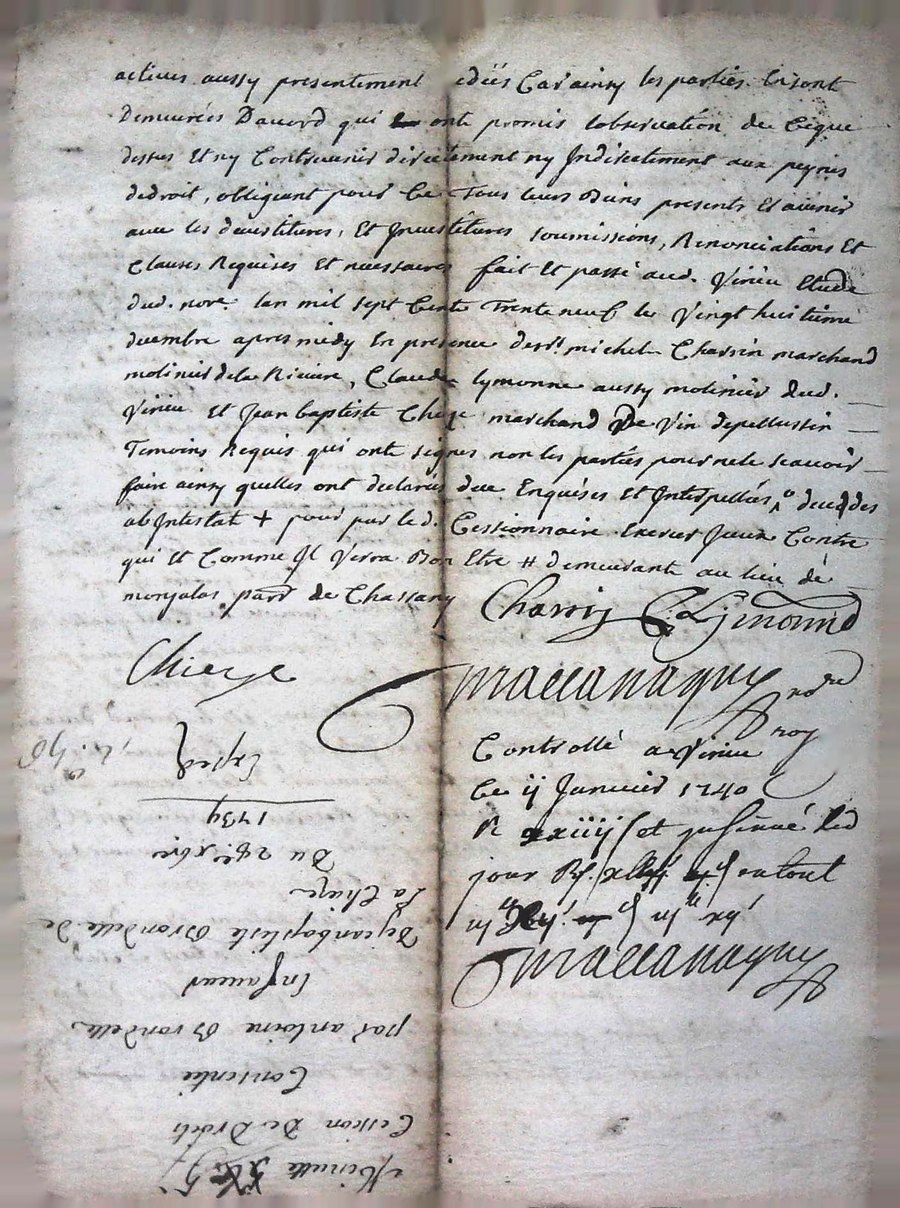 actives aussy presentement cedées Car ainsy les parties En sont
demeurées Daccord qui ont promis lobservation du Ceque
dessus Et ny Contrevenir directement ny Indirectement aux peynes
dedroit, obligeant pour Ce Tous leurs Biens presents Et avenir
avec les devestitures, Et Investitures soumissions, Renonciations Et
Clauses Requises Et necessaires fait Et passé aud. Virieu Etude
dud. nore. lan mil sept Cents Trente neuf le Vingt huitieme
decembre apres midy En presence de sr. michel Charrin marchand
molinier dela Riviere, Claude lymonne aussy molinier dud.
Virieu Et Jean baptiste Chieze marchand De Vin depellussin
Temoins Requis qui ont signes non les parties pour ne le scavoir
faire ainsy quelles ont declarés due Enquéses Et Interpellées, decedes
abIntestat + pour par led. Cessionnaire Exercer Iceux Contre
qui Et Comme Il Verra Bon Etre # demeurante au lieu de
monjalas parr de Chassany
Charrin C. Lymonne
Chieze
maccanaguy nore
roy
Controllé a Virieu
Le ij Janvier 1740
R xxiiij s et Insinué led
jour R. autout
maccanaguy
Minutte
Cession De Droits
Consentie
par antoine Brondelle
En faveur
De jean baptiste Brondelle de
La Chieze
Du 28e. xbre
1739
Exped